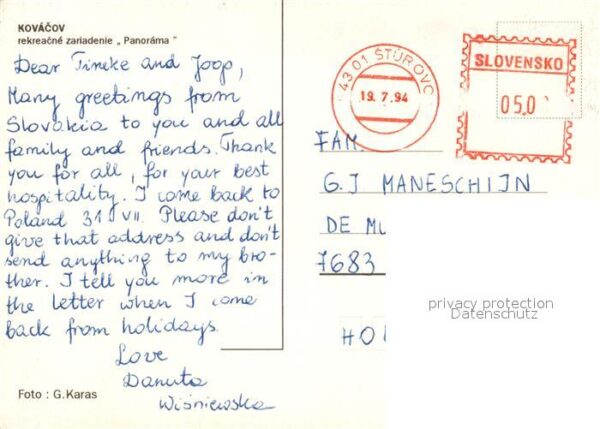 KOVÁČOV
rekreačné zariadenie „ Panoráma "
Dear Tineke and Joop,
Many greetings from
Slovakia to you and all
family and friends. Thank
you for all, for your best
hospitality. I come back to
Poland 31 VII. Please don't
give that address and don't
send anything to my bro-
ther. I tell you more in
the letter when I come
back from holidays.
Love
Danuta
Wiśniewska
Foto : G. Karas
43 01 ŠTÚROVO
19.7.94
SLOVENSKO
05,0
FAM.
G.J MANESCHIJN
DE
7683
privacy protection
Datenschutz